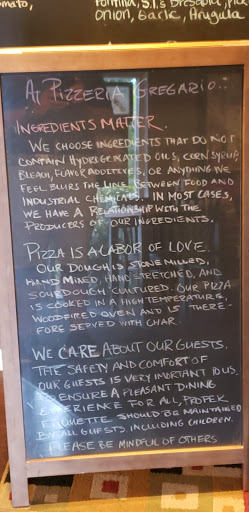 omato,
Fontina, S.I.'s Bresaola, pick
onion, Garlic, Arugula
AT PIZZERIA GREGARIO..
INGREDIENTS MATTER.
WE CHOOSE INGREDIENTS THAT DO NOT
CONTAIN HYDROGENATED OILS, CORN SYRUP,
BLEACH, FLAVOR ADDITIVES, OR ANYTHING WE
FEEL BLURS THE LINE BETWEEN FOOD AND
INDUSTRIAL CHEMICALS. IN MOST CASES,
WE HAVE A RELATIONSHIP WITH THE
PRODUCERS OF OUR INGREDIENTS.
PIZZA IS A LABOR OF LOVE.
OUR DOUGH IS STONE MILLED,
HAND MIXED, HAND STRETCHED, AND
SOURDOUGH CULTURED. OUR PIZZA
IS COOKED IN A HIGH TEMPERATURE,
WOODFIRED OVEN AND IS THERE-
FORE SERVED WITH CHAR.
WE CARE ABOUT OUR GUESTS.
THE SAFETY AND COMFORT OF
OUR GUESTS IS VERY IMPORTANT TO US.
TO ENSURE A PLEASANT DINING
EXPERIENCE FOR ALL, PROPER
ETIQUETTE SHOULD BE MAINTAINED
BY ALL GUESTS, INCLUDING CHILDREN.
PLEASE BE MINDFUL OF OTHERS